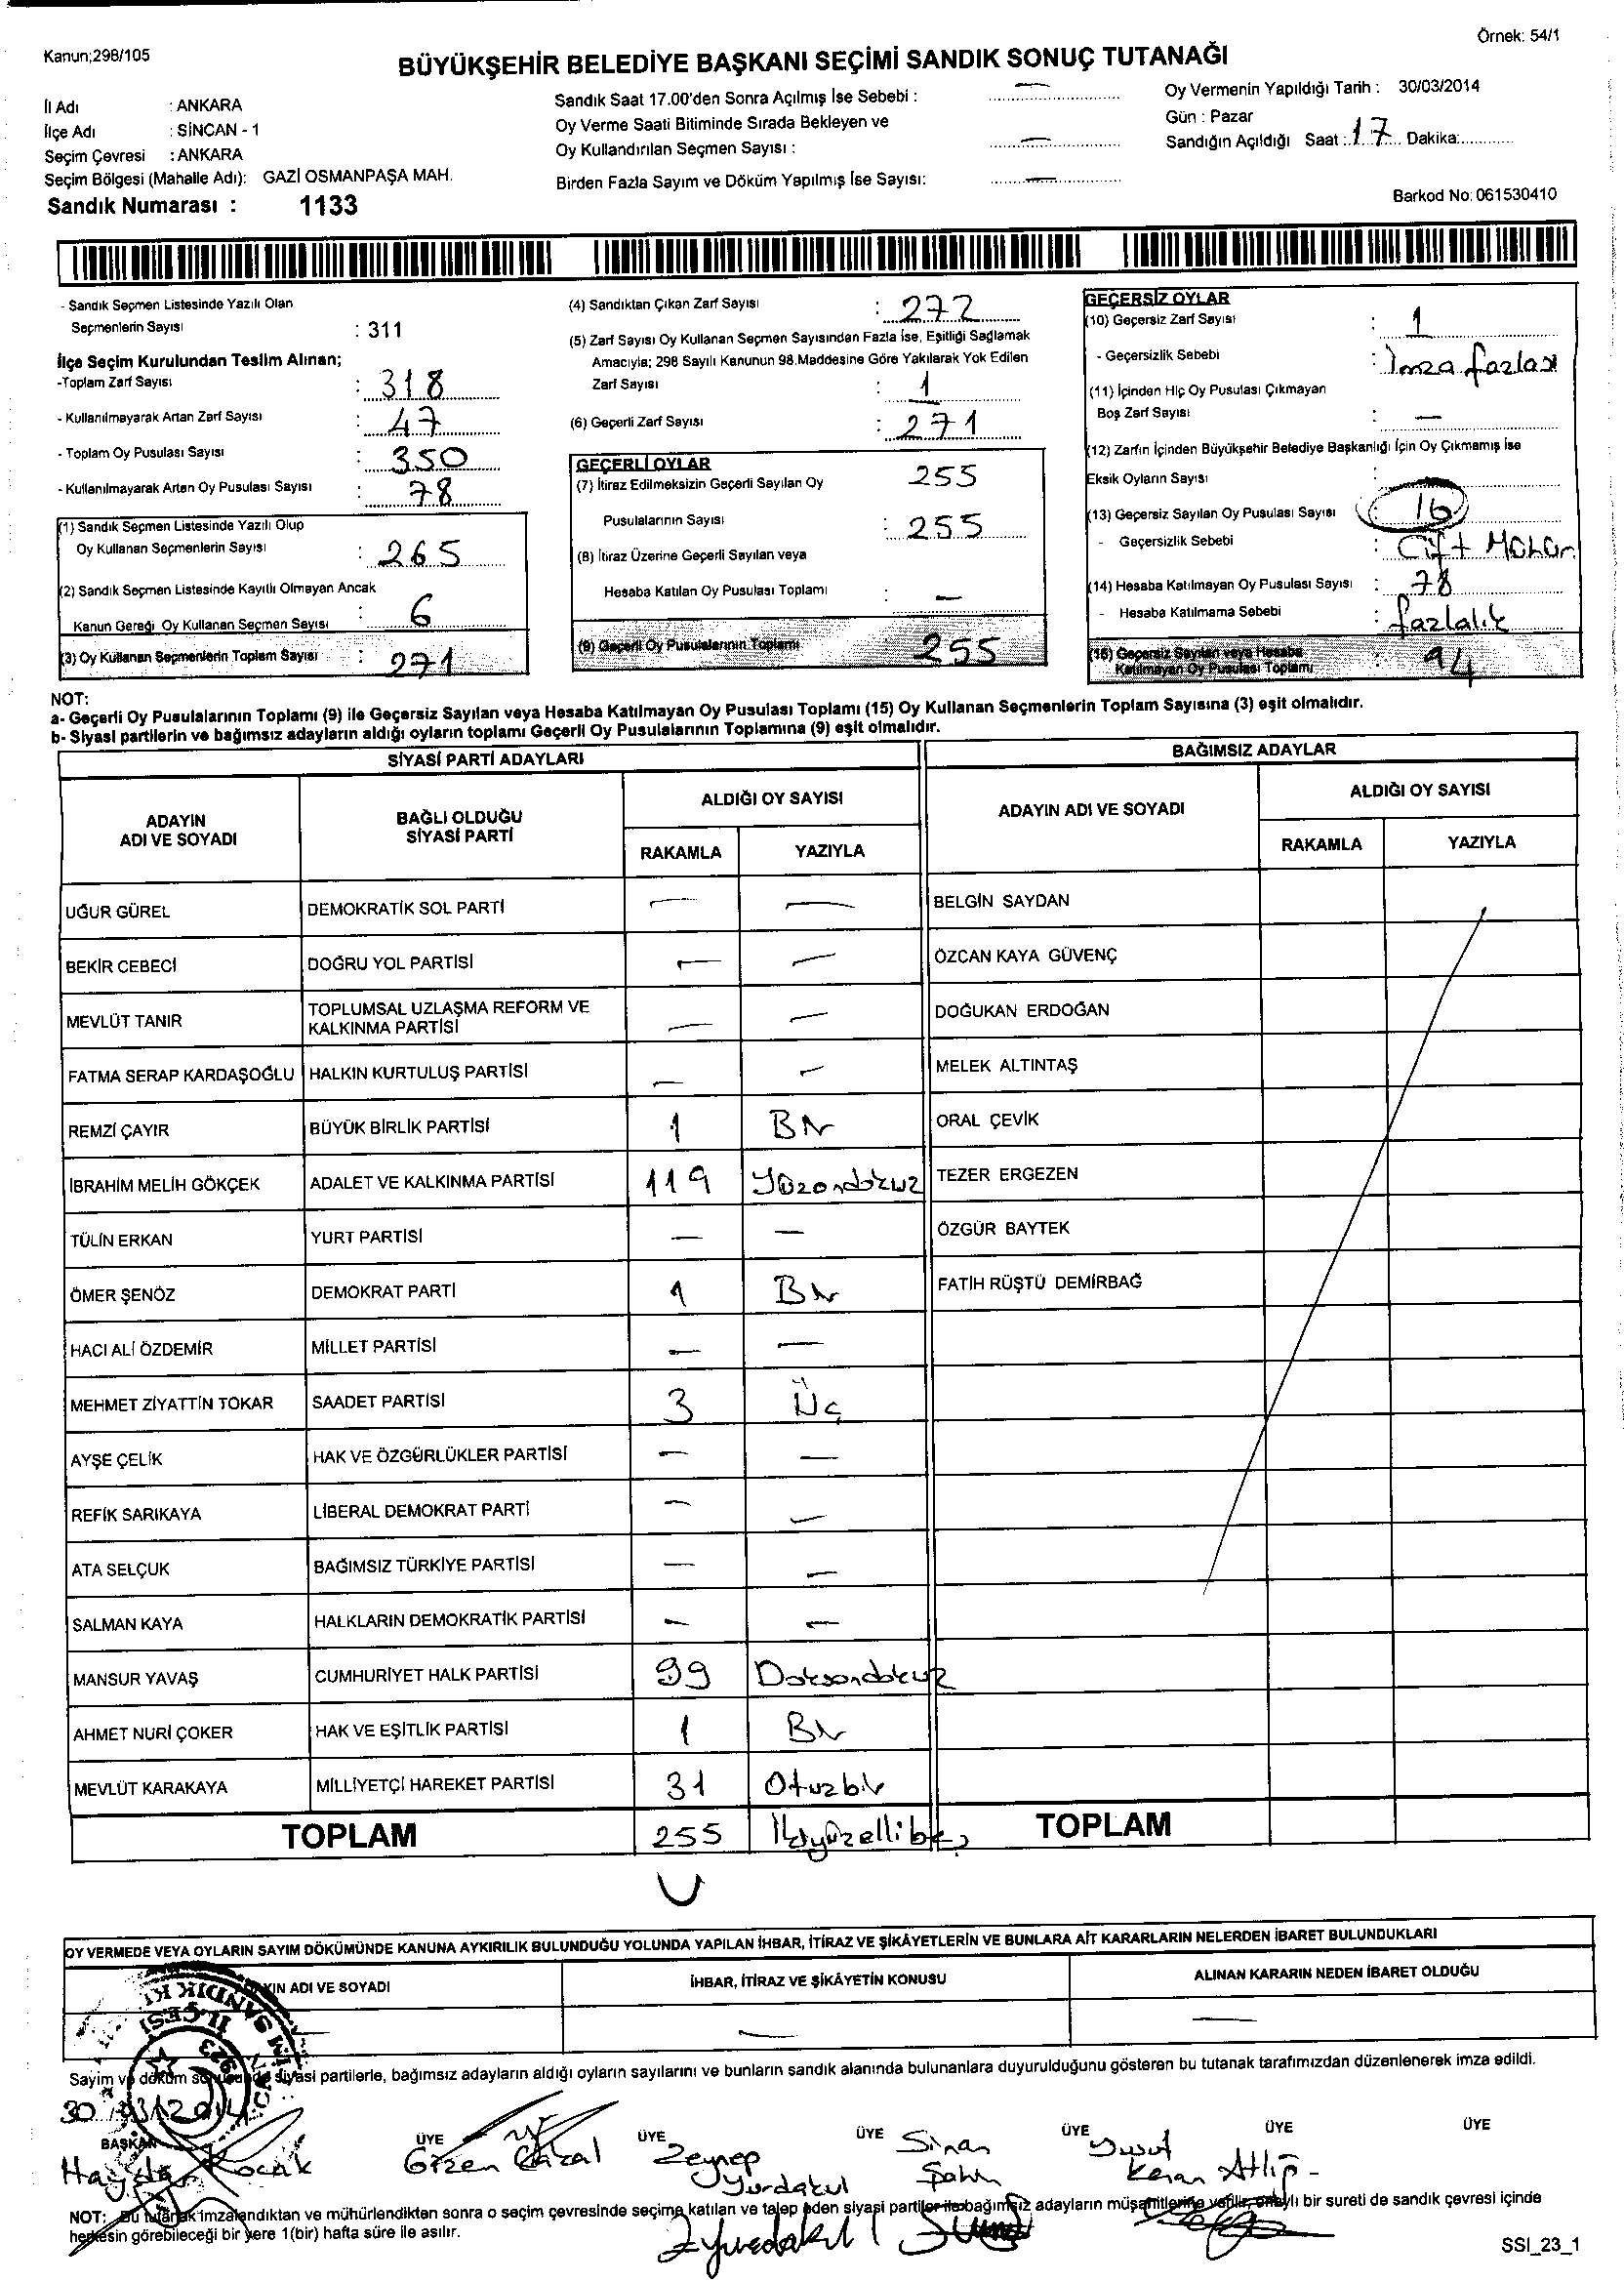 Örnek: 54/1
Kanun;298/105
BÜYÜKŞEHİR BELEDİYE BAŞKANI SEÇİMİ SANDIK SONUÇ TUTANAĞI
İl Adı : ANKARA
İlçe Adı : SİNCAN - 1
Seçim Çevresi : ANKARA
Seçim Bölgesi (Mahalle Adı): GAZİ OSMANPAŞA MAH.
Sandık Numarası : 1133
Sandık Saat 17.00'den Sonra Açılmış İse Sebebi : —
Oy Verme Saati Bitiminde Sırada Bekleyen ve
Oy Kullandırılan Seçmen Sayısı : —
Birden Fazla Sayım ve Döküm Yapılmış İse Sayısı: —
Oy Vermenin Yapıldığı Tarih : 30/03/2014
Gün : Pazar
Sandığın Açıldığı Saat : 17 Dakika:
Barkod No: 061530410
- Sandık Seçmen Listesinde Yazılı Olan
Seçmenlerin Sayısı : 311
İlçe Seçim Kurulundan Teslim Alınan;
-Toplam Zarf Sayısı : 318
- Kullanılmayarak Artan Zarf Sayısı : 47
- Toplam Oy Pusulası Sayısı : 350
- Kullanılmayarak Artan Oy Pusulası Sayısı : 78
(1) Sandık Seçmen Listesinde Yazılı Olup
Oy Kullanan Seçmenlerin Sayısı : 265
(2) Sandık Seçmen Listesinde Kayıtlı Olmayan Ancak
Kanun Gereği Oy Kullanan Seçmen Sayısı : 6
(3) Oy Kullanan Seçmenlerin Toplam Sayısı : 271
(4) Sandıktan Çıkan Zarf Sayısı : 272
(5) Zarf Sayısı Oy Kullanan Seçmen Sayısından Fazla İse, Eşitliği Sağlamak
Amacıyla; 298 Sayılı Kanunun 98.Maddesine Göre Yakılarak Yok Edilen
Zarf Sayısı : 1
(6) Geçerli Zarf Sayısı : 271
GEÇERLİ OYLAR
(7) İtiraz Edilmeksizin Geçerli Sayılan Oy 255
Pusulalarının Sayısı : 255
(8) İtiraz Üzerine Geçerli Sayılan veya
Hesaba Katılan Oy Pusulası Toplamı : —
(9) Geçerli Oy Pusulalarının Toplamı 255
GEÇERSİZ OYLAR
(10) Geçersiz Zarf Sayısı : 1
- Geçersizlik Sebebi : İmza fazlası
(11) İçinden Hiç Oy Pusulası Çıkmayan
Boş Zarf Sayısı : —
(12) Zarfın İçinden Büyükşehir Belediye Başkanlığı İçin Oy Çıkmamış İse
Eksik Oyların Sayısı :
(13) Geçersiz Sayılan Oy Pusulası Sayısı : 16
- Geçersizlik Sebebi : Çift Mühür
(14) Hesaba Katılmayan Oy Pusulası Sayısı : 78
- Hesaba Katılmama Sebebi : fazlalık
(15) Geçersiz Sayılan veya Hesaba
Katılmayan Oy Pusulası Toplamı : 94
NOT:
a- Geçerli Oy Pusulalarının Toplamı (9) ile Geçersiz Sayılan veya Hesaba Katılmayan Oy Pusulası Toplamı (15) Oy Kullanan Seçmenlerin Toplam Sayısına (3) eşit olmalıdır.
b- Siyasi partilerin ve bağımsız adayların aldığı oyların toplamı Geçerli Oy Pusulalarının Toplamına (9) eşit olmalıdır.
SİYASİ PARTİ ADAYLARI
ADAYIN ADI VE SOYADI
BAĞLI OLDUĞU SİYASİ PARTİ
ALDIĞI OY SAYISI
RAKAMLA YAZIYLA
UĞUR GÜREL DEMOKRATİK SOL PARTİ — —
BEKİR CEBECİ DOĞRU YOL PARTİSİ — —
MEVLÜT TANIR TOPLUMSAL UZLAŞMA REFORM VE KALKINMA PARTİSİ — —
FATMA SERAP KARDAŞOĞLU HALKIN KURTULUŞ PARTİSİ — —
REMZİ ÇAYIR BÜYÜK BİRLİK PARTİSİ 1 Bir
İBRAHİM MELİH GÖKÇEK ADALET VE KALKINMA PARTİSİ 119 Yüzondokuz
TÜLİN ERKAN YURT PARTİSİ — —
ÖMER ŞENÖZ DEMOKRAT PARTİ 1 Bir
HACI ALİ ÖZDEMİR MİLLET PARTİSİ — —
MEHMET ZİYATTİN TOKAR SAADET PARTİSİ 3 Üç
AYŞE ÇELİK HAK VE ÖZGÜRLÜKLER PARTİSİ — —
REFİK SARIKAYA LİBERAL DEMOKRAT PARTİ — —
ATA SELÇUK BAĞIMSIZ TÜRKİYE PARTİSİ — —
SALMAN KAYA HALKLARIN DEMOKRATİK PARTİSİ — —
MANSUR YAVAŞ CUMHURİYET HALK PARTİSİ 99 Doksandokuz
AHMET NURİ ÇOKER HAK VE EŞİTLİK PARTİSİ 1 Bir
MEVLÜT KARAKAYA MİLLİYETÇİ HAREKET PARTİSİ 31 Otuzbir
TOPLAM 255 İkiyüzellibeş
BAĞIMSIZ ADAYLAR
ADAYIN ADI VE SOYADI
ALDIĞI OY SAYISI
RAKAMLA YAZIYLA
BELGİN SAYDAN
ÖZCAN KAYA GÜVENÇ
DOĞUKAN ERDOĞAN
MELEK ALTINTAŞ
ORAL ÇEVİK
TEZER ERGEZEN
ÖZGÜR BAYTEK
FATİH RÜŞTÜ DEMİRBAĞ
TOPLAM
OY VERMEDE VEYA OYLARIN SAYIM DÖKÜMÜNDE KANUNA AYKIRILIK BULUNDUĞU YOLUNDA YAPILAN İHBAR, İTİRAZ VE ŞİKÂYETLERİN VE BUNLARA AİT KARARLARIN NELERDEN İBARET BULUNDUKLARI
ADI VE SOYADI
İHBAR, İTİRAZ VE ŞİKÂYETİN KONUSU
ALINAN KARARIN NEDEN İBARET OLDUĞU
— — —
Sayım ve döküm sonucunda siyasi partilerle, bağımsız adayların aldığı oyların sayılarını ve bunların sandık alanında bulunanlara duyurulduğunu gösteren bu tutanak tarafımızdan düzenlenerek imza edildi.
30/03/2014
BAŞKAN ÜYE ÜYE ÜYE ÜYE ÜYE ÜYE
Haydar Kocak
Gizen
Zeynep Yurdakul
Sinan Şahin
Yusuf Kenan
NOT: Bu tutanak imzalandıktan ve mühürlendikten sonra o seçim çevresinde seçime katılan ve talep eden siyasi partiler ile bağımsız adayların müşahitlerine verilir, onaylı bir sureti de sandık çevresi içinde
herkesin görebileceği bir yere 1(bir) hafta süre ile asılır.
Zyurdakul
SSI_23_1